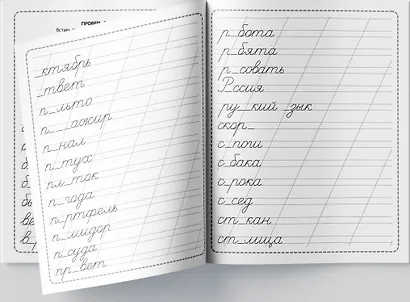 _ктябрь
_твет
п_льто
п___ажир
п_нал
п_тух
пл_ток
п_года
п_ртфель
п_мидор
п_суда
пр_вет
р_бота
р_бята
р_совать
Р_ссия
ру_кий _зык
скор_
с_поги
с_бака
с_рока
с_сед
ст_кан
ст_лица